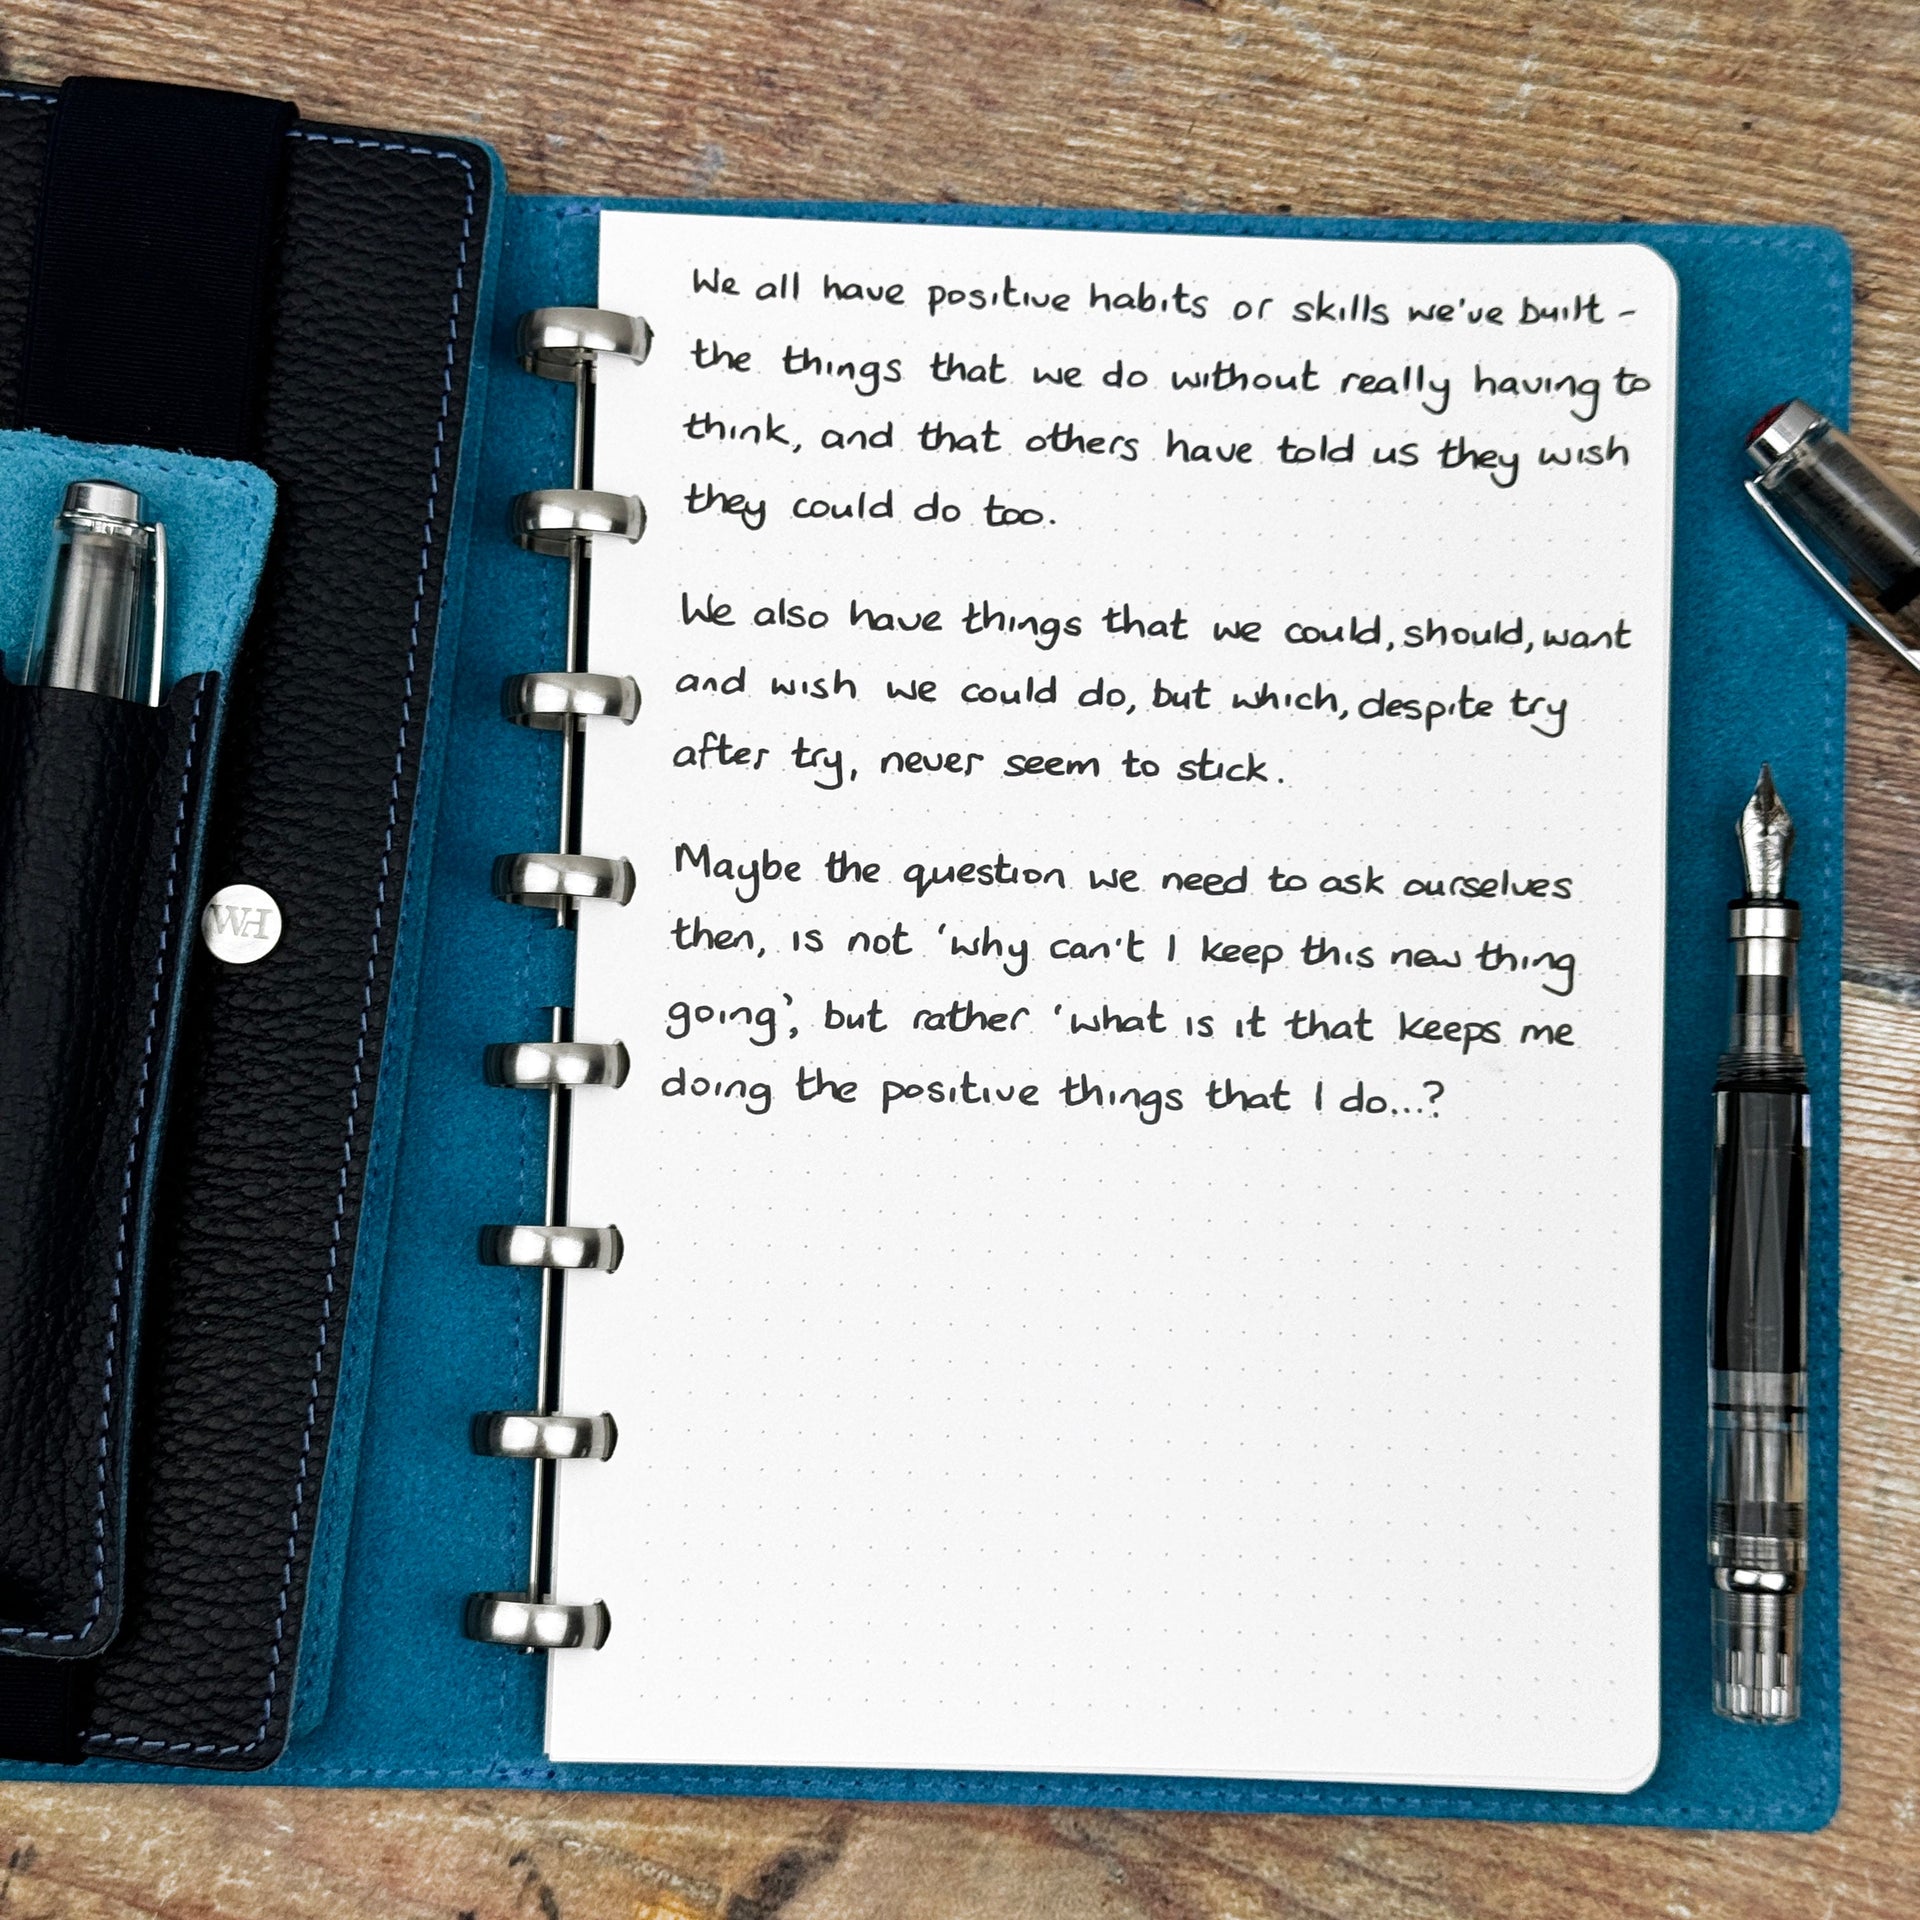 We all have positive habits or skills we've built -
the things that we do without really having to
think, and that others have told us they wish
they could do too.
We also have things that we could, should, want
and wish we could do, but which, despite try
after try, never seem to stick.
Maybe the question we need to ask ourselves
then, is not 'why can't I keep this new thing
going', but rather 'what is it that keeps me
doing the positive things that I do...?
WH